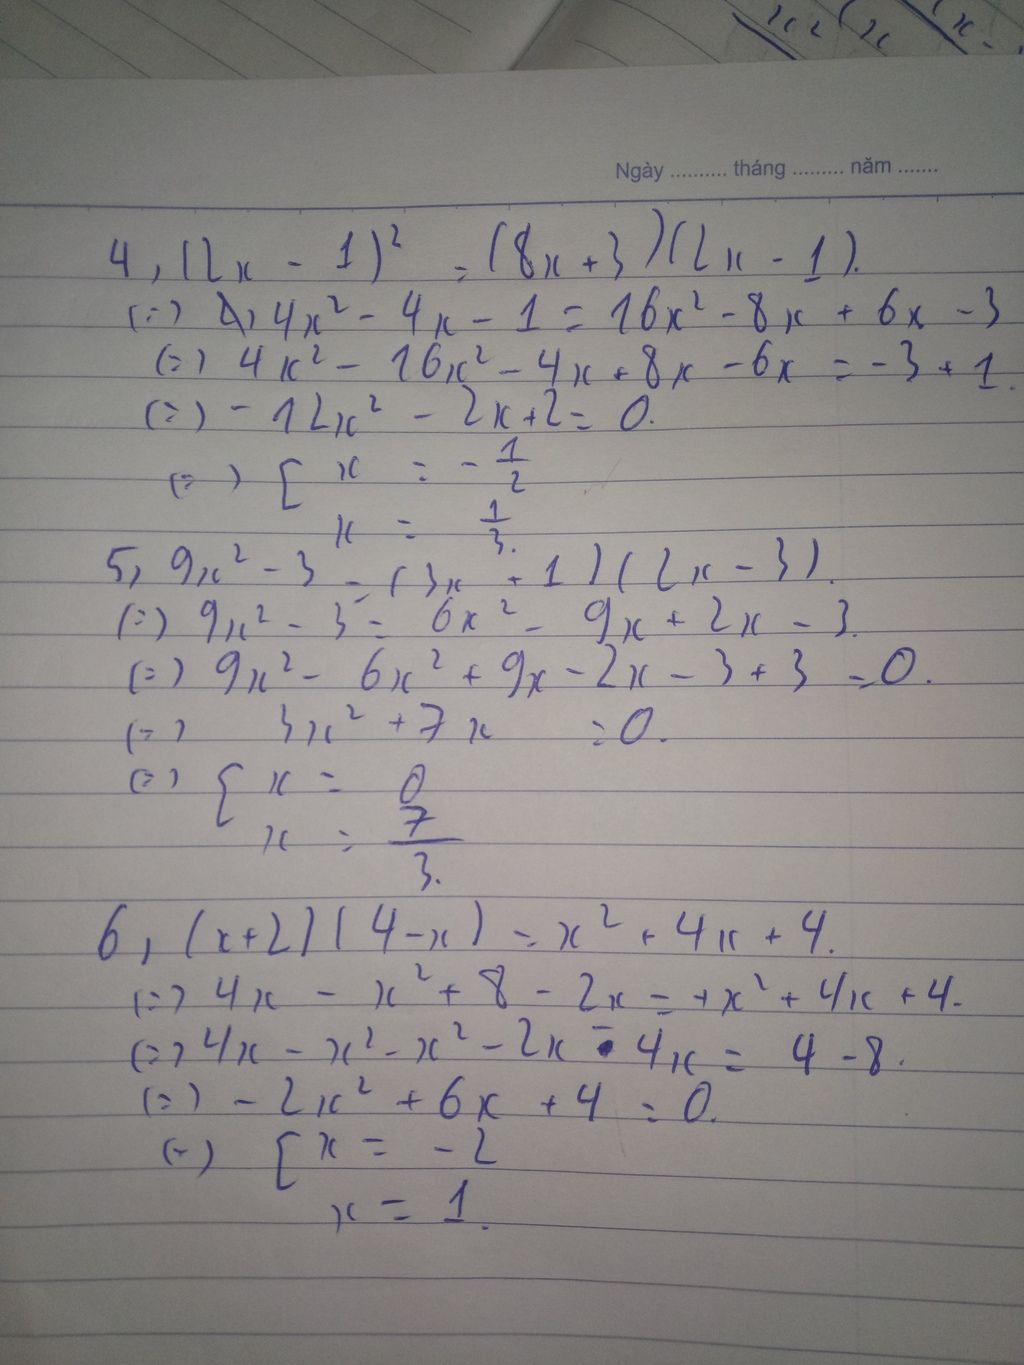 Ngày .......... tháng ......... năm .......
4, (2x - 1)² = (8x+3)(2x - 1).
(=) 4x² - 4x - 1 = 16x² - 8x + 6x - 3
(=) 4x² - 16x² - 4x + 8x - 6x = -3 + 1.
(=) -12x² - 2x + 2 = 0.
(=) [ x = - 1/2
x = 1/3.
5, 9x² - 3 = (3x + 1)(2x - 3).
(=) 9x² - 3 = 6x² - 9x + 2x - 3.
(=) 9x² - 6x² + 9x - 2x - 3 + 3 = 0.
(=) 3x² + 7x = 0.
(=) [ x = 0
x = 7/3.
6, (x+2)(4-x) = x² + 4x + 4.
(=) 4x - x² + 8 - 2x = +x² + 4x + 4.
(=) 4x - x² - x² - 2x - 4x = 4 - 8.
(=) -2x² + 6x + 4 = 0.
(=) [ x = -2
x = 1.